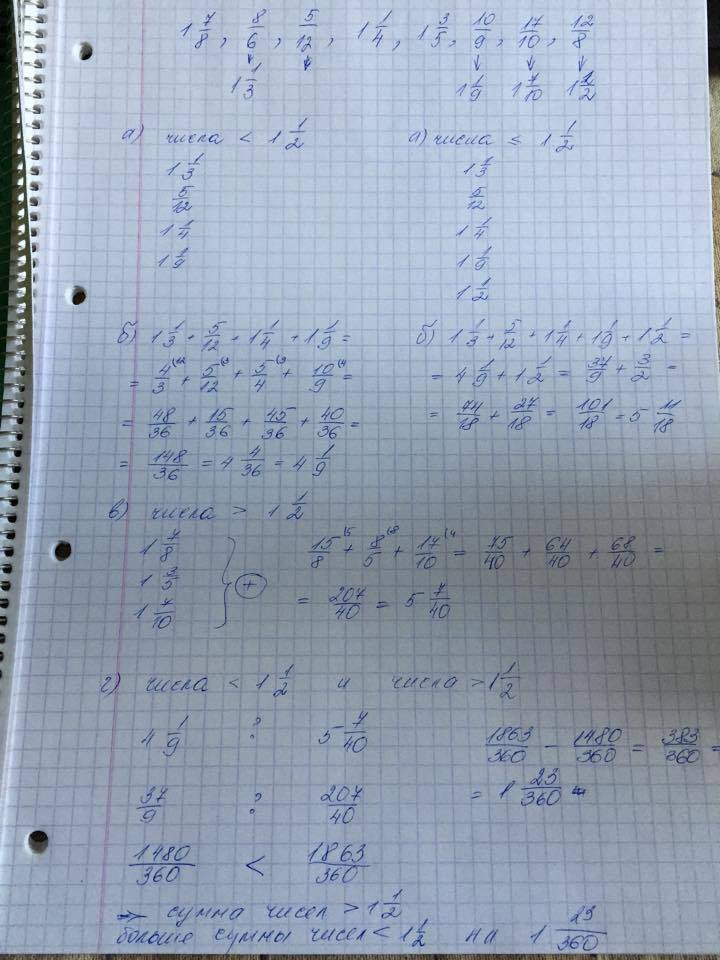 1 7/8, 8/6, 5/12, 1 1/4, 1 3/5, 10/9, 17/10, 12/8
1 1/3 1 1/9 1 7/10 1 1/2
а) числа < 1 1/2
1 1/3
5/12
1 1/4
1 1/9
а) числа ≤ 1 1/2
1 1/3
5/12
1 1/4
1 1/9
1 1/2
б) 1 1/3 + 5/12 + 1 1/4 + 1 1/9 =
= 4/3 (12 + 5/12 (3 + 5/4 (9 + 10/9 (4 =
= 48/36 + 15/36 + 45/36 + 40/36 =
= 148/36 = 4 4/36 = 4 1/9
б) 1 1/3 + 5/12 + 1 1/4 + 1 1/9 + 1 1/2 =
= 4 1/9 + 1 1/2 = 37/9 + 3/2 =
= 74/18 + 27/18 = 101/18 = 5 11/18
в) числа > 1 1/2
1 7/8
1 3/5
1 7/10
+
15/8 (5 + 8/5 (8 + 17/10 (4 = 75/40 + 64/40 + 68/40 =
= 207/40 = 5 7/40
г) числа < 1 1/2 и числа > 1 1/2
4 1/9 ? 5 7/40
37/9 ? 207/40
1480/360 < 1863/360
1863/360 - 1480/360 = 383/360 =
= 1 23/360
=> сумма чисел > 1 1/2
больше суммы чисел < 1 1/2 на 1 23/360